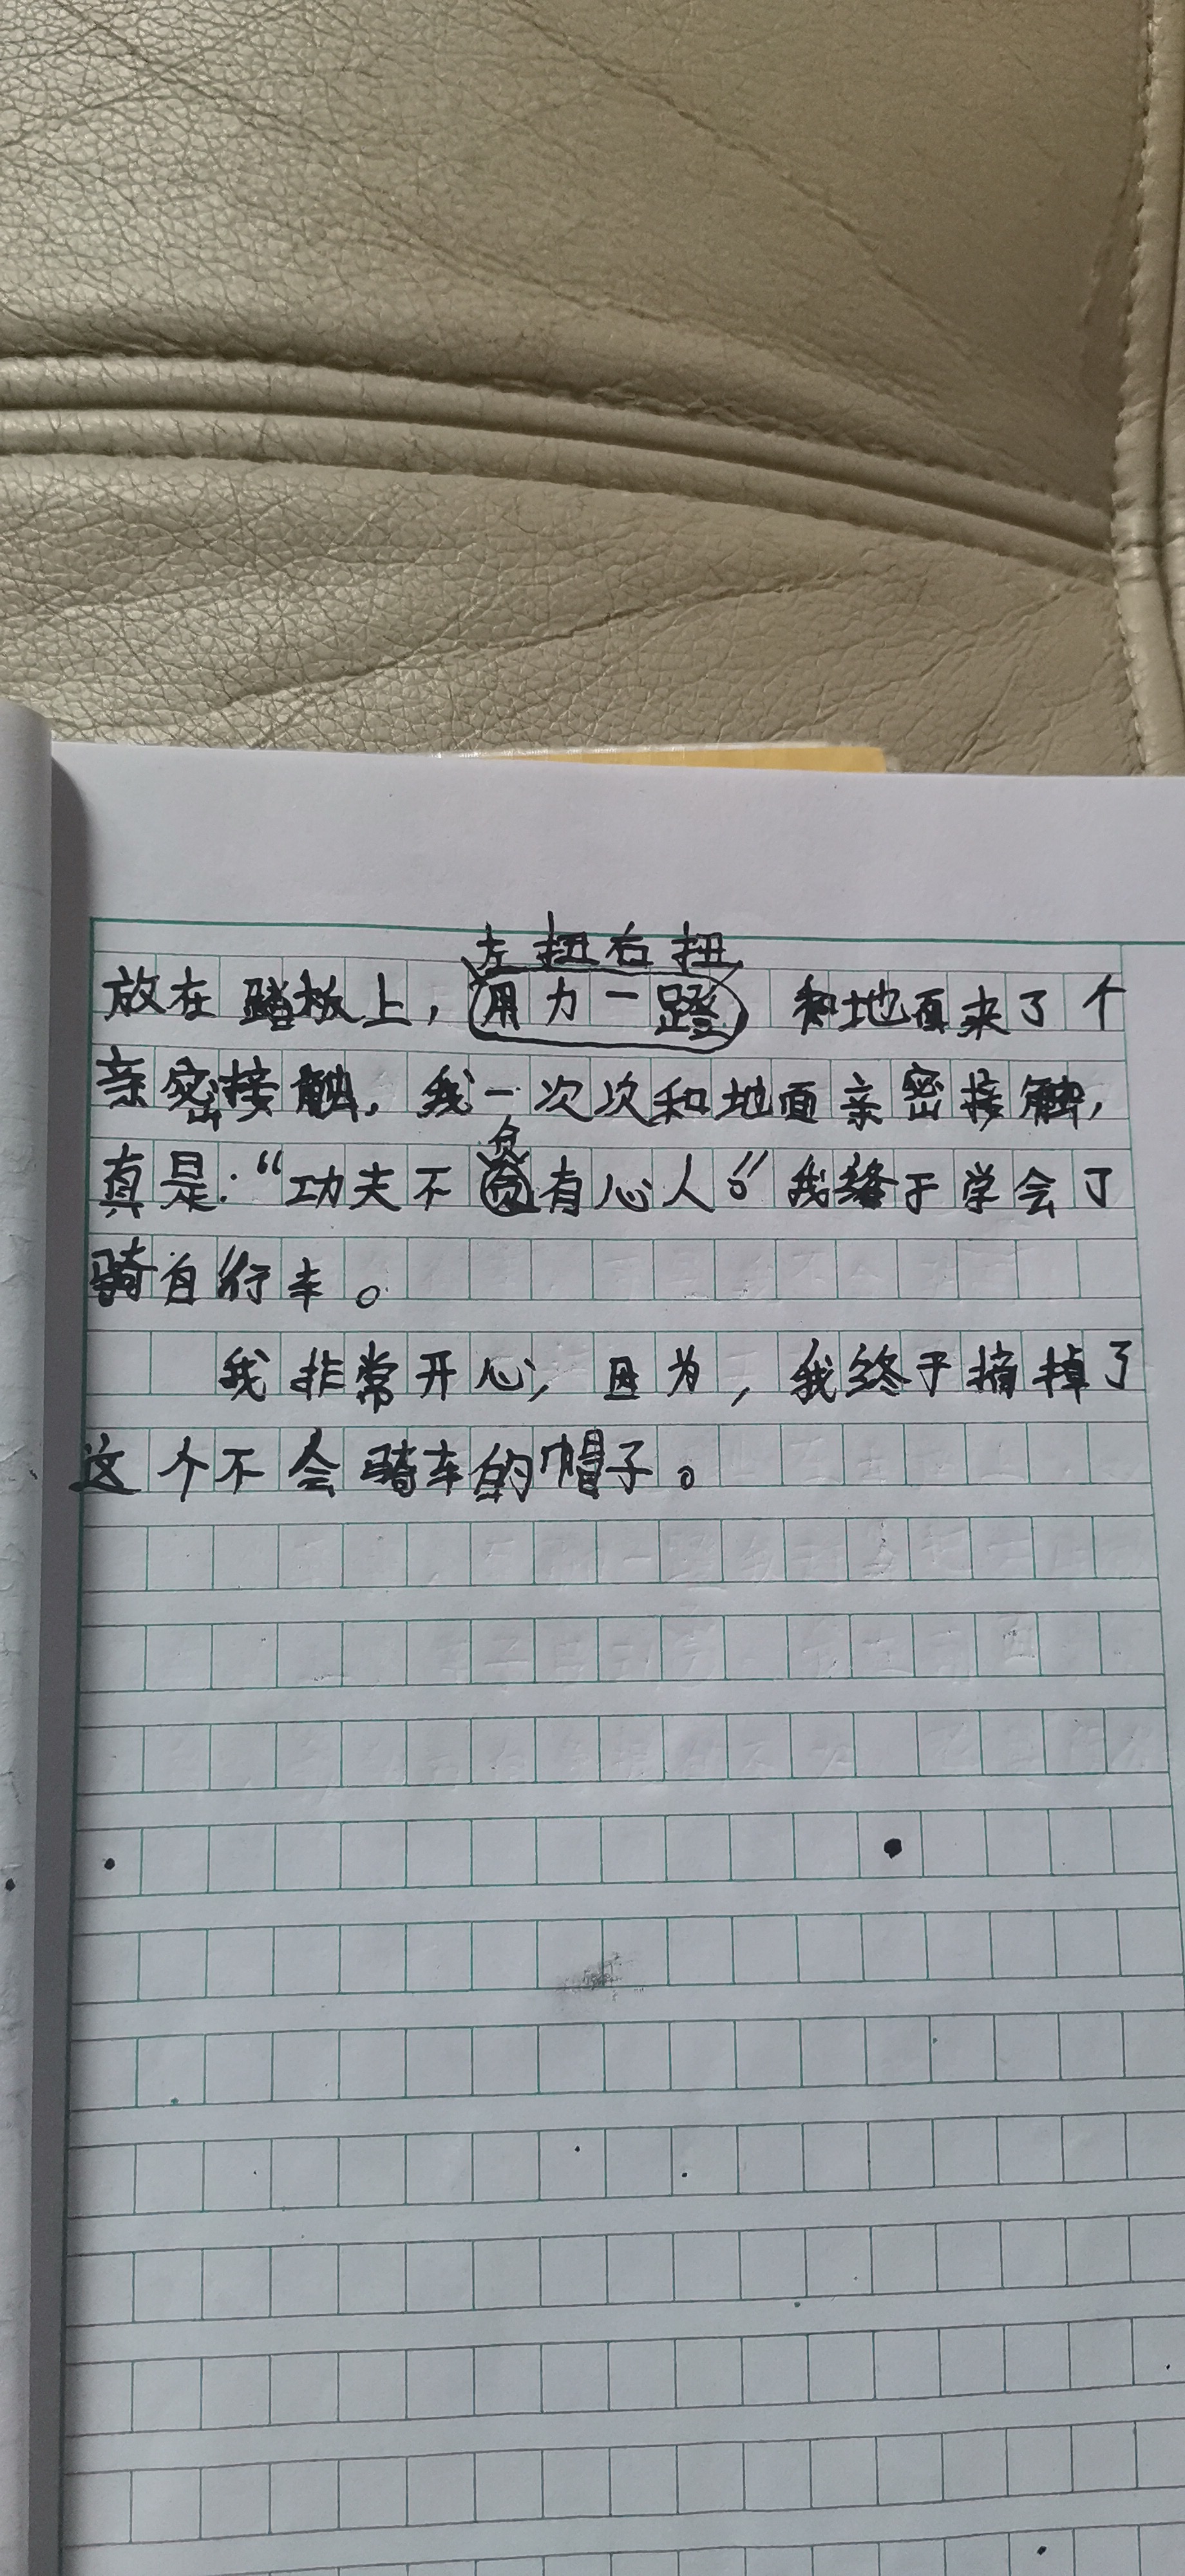 左扭右扭
放在踏板上，用力一蹬 和地面来了个
亲密接触，我一次次和地面亲密接触，
负
真是：“功夫不负有心人。”我终于学会了
骑自行车。
我非常开心，因为，我终于摘掉了
这个不会骑车的帽子。